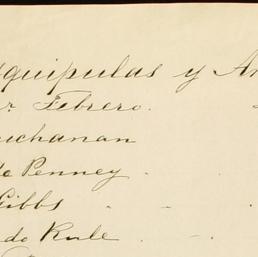 squipulas y An
r Febrero.
uchanan
de Penney
Gibbs
do Rule